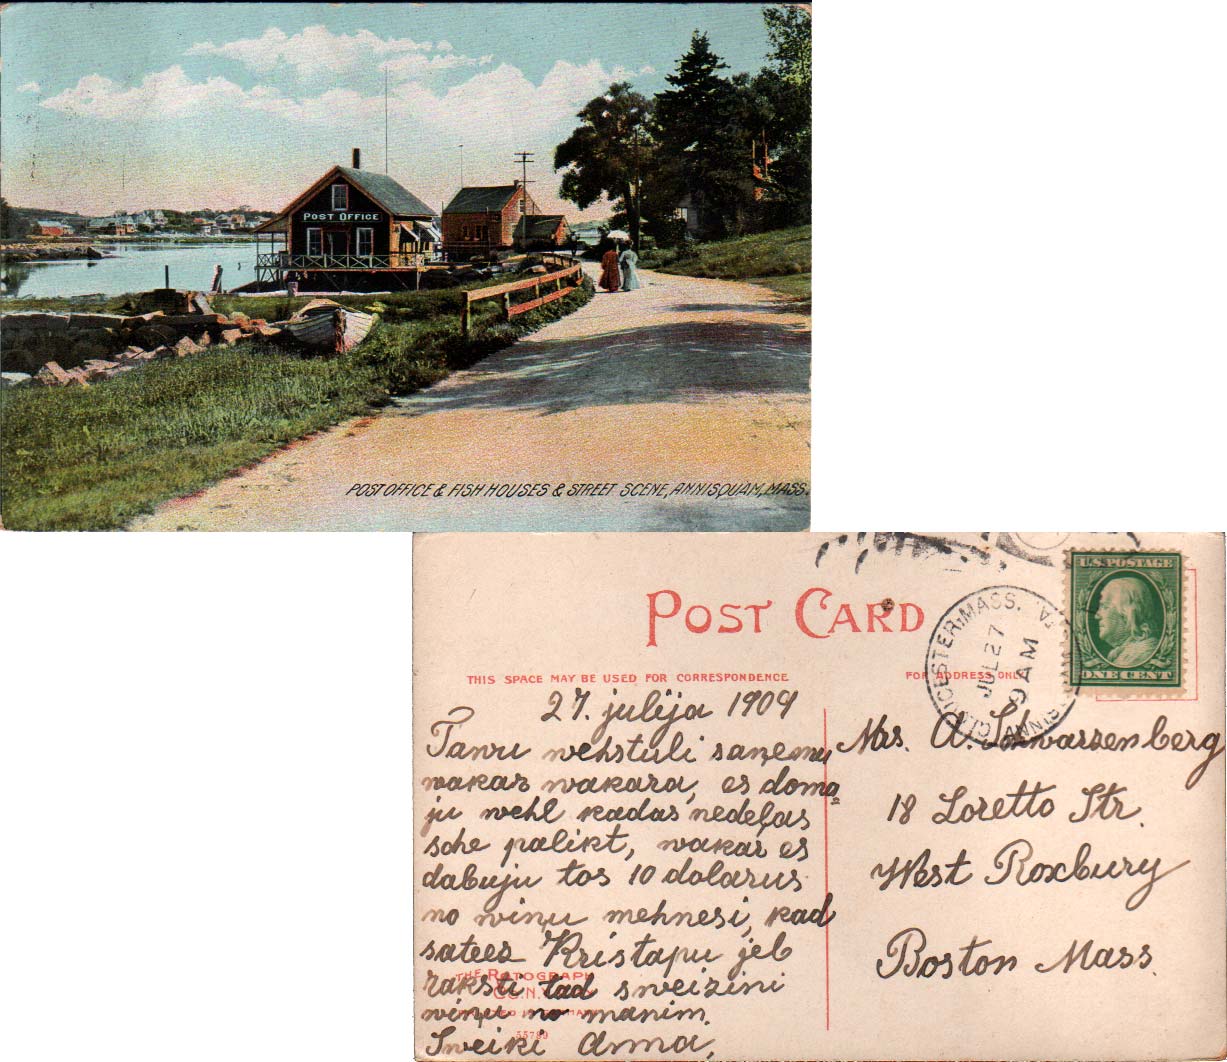 POST OFFICE
POST OFFICE & FISH HOUSES & STREET SCENE, ANNISQUAM, MASS.
POST CARD
THIS SPACE MAY BE USED FOR CORRESPONDENCE
FOR ADDRESS ONLY
GLOUCESTER, MASS.
JUL 27
9 AM
U.S. POSTAGE
ONE CENT
27. julija 1909
Tawu wehstuli saņemu
wakar wakara, es doma
ju wehl kadas nedeļas
sche palikt, wakar es
dabuju tos 10 dolarus
no wiņu mehnesi, kad
satees Kristapu jeb
raksti tad sweizini
wiņu no manim.
Sweiki Anna,
THE ROTOGRAPH
CO. N.
55789
Mrs. A. Schwarzenberg
18 Loretto Str.
West Roxbury
Boston Mass.